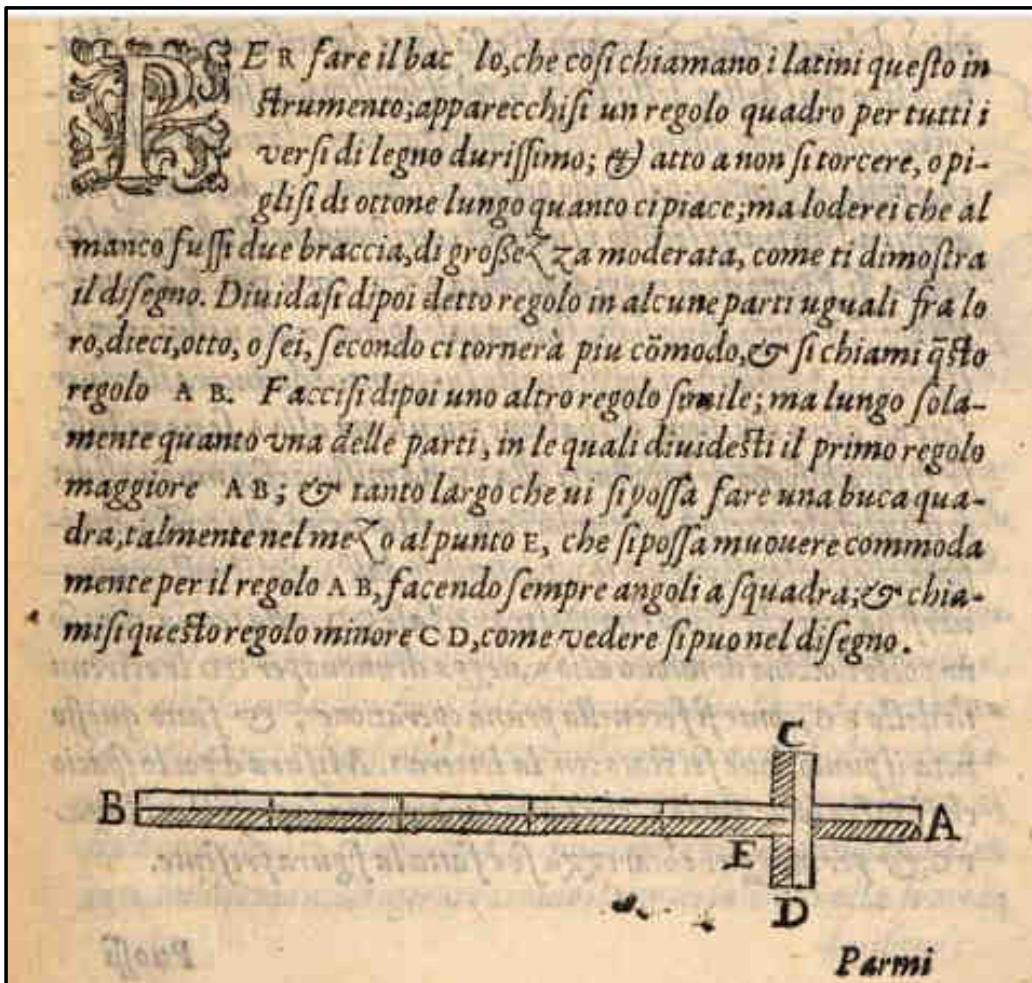 PER fare il bac lo, che coſi chiamano i latini queſto in
ſtrumento; apparecchiſi un regolo quadro per tutti i
verſi di legno duriſſimo; & atto a non ſi torcere, o pi-
gliſi di ottone lungo quanto ci piace; ma loderei che al
manco fuſſi due braccia, di groſſezza moderata, come ti dimoſtra
il diſegno. Diuidaſi dipoi detto regolo in alcune parti uguali fra lo
ro, dieci, otto, o ſei, ſecondo ci tornerà piu cōmodo, & ſi chiami q̄ſto
regolo A B. Facciſi dipoi uno altro regolo ſimile; ma lungo ſola-
mente quanto vna delle parti, in le quali diuideſti il primo regolo
maggiore A B; & tanto largo che ui ſi poſſa fare una buca qua-
dra, talmente nel mezo al punto E, che ſi poſſa muouere commoda
mente per il regolo A B, facendo ſempre angoli a ſquadra; & chia-
miſi queſto regolo minore C D, come vedere ſi puo nel diſegno.
C
B A
E
D
Parmi